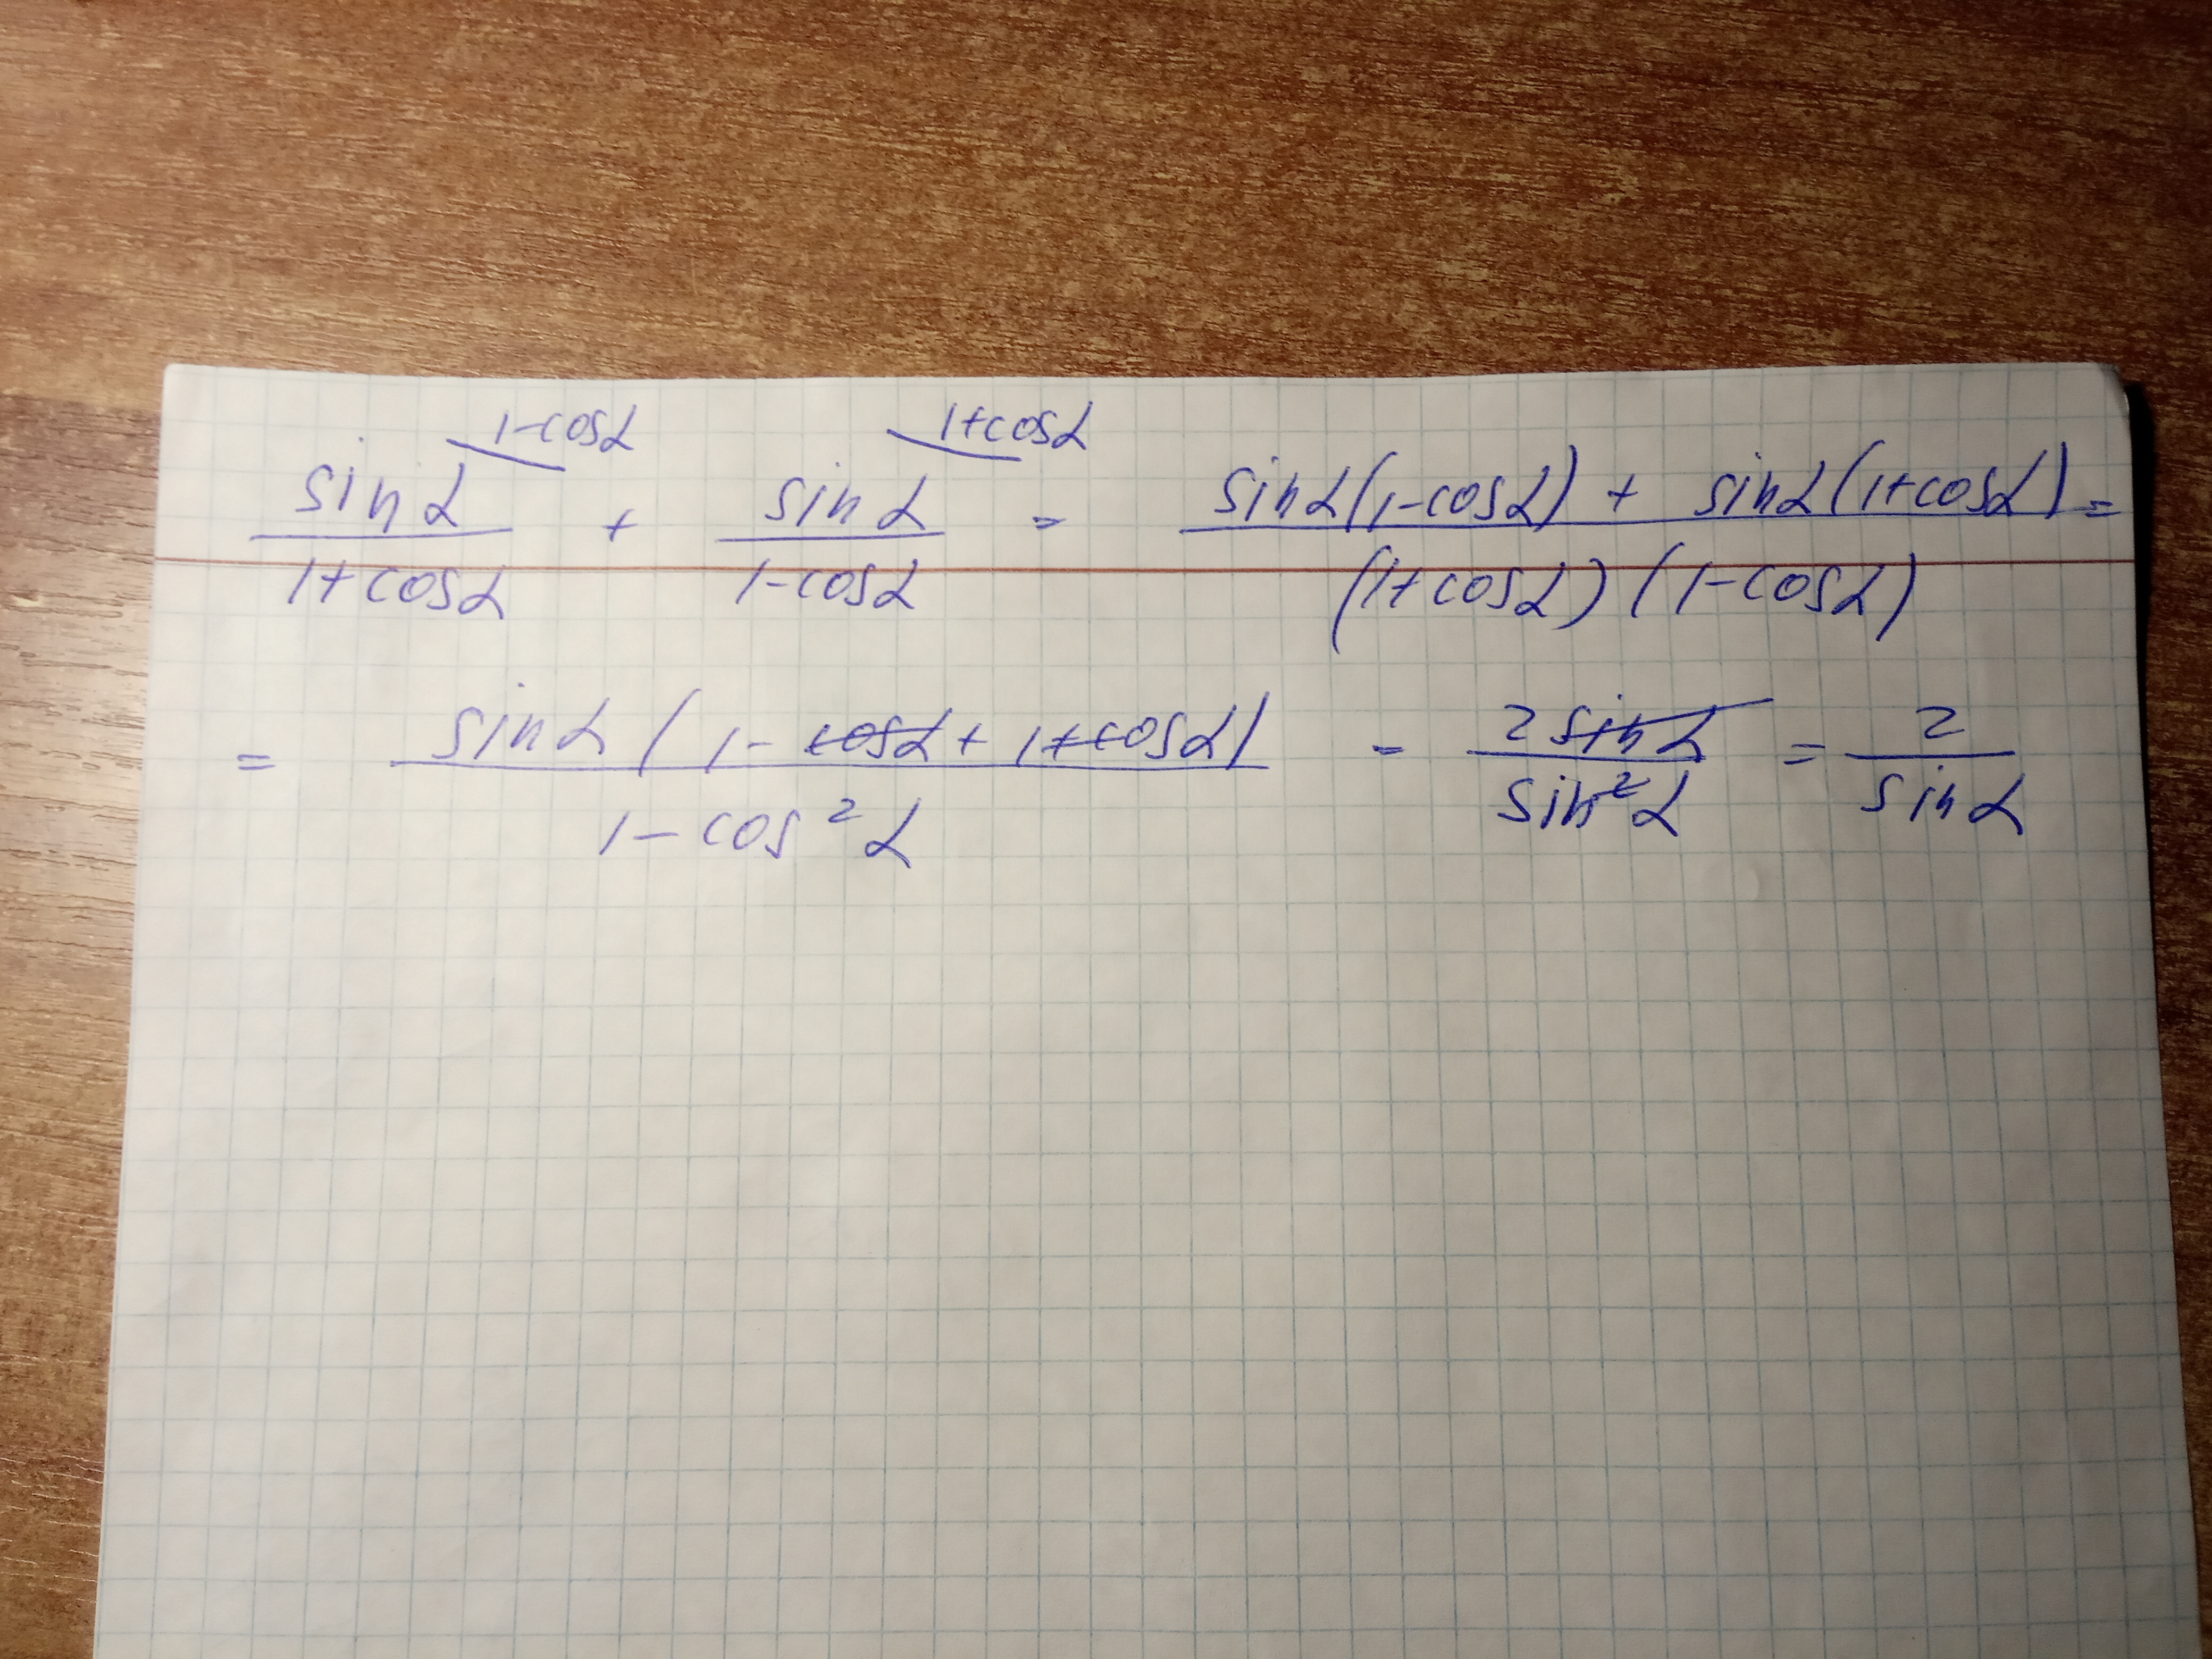 sinα/(1+cosα) ^(1-cosα) + sinα/(1-cosα) ^(1+cosα) = (sinα(1-cosα) + sinα(1+cosα))/((1+cosα)(1-cosα)) =
= (sinα(1-cosα+1+cosα))/(1-cos²α) = 2sinα/sin²α = 2/sinα